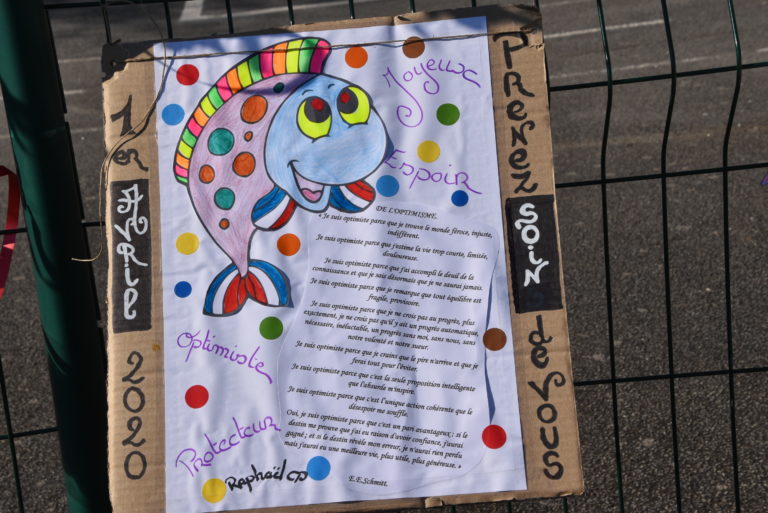 1er
Avril
2020
Joyeux
Espoir
Optimiste
Protecteur
Raphaël CP
DE L'OPTIMISME.
« Je suis optimiste parce que je trouve le monde féroce, injuste,
indifférent.
Je suis optimiste parce que j'estime la vie trop courte, limitée,
douloureuse.
Je suis optimiste parce que j'ai accompli le deuil de la
connaissance et que je sais désormais que je ne saurai jamais.
Je suis optimiste parce que je remarque que tout équilibre est
fragile, provisoire.
Je suis optimiste parce que je ne crois pas au progrès, plus
exactement, je ne crois pas qu'il y ait un progrès automatique,
nécessaire, inéluctable, un progrès sans moi, sans nous, sans
notre volonté et notre sueur.
Je suis optimiste parce que je crains que le pire n'arrive et que je
ferai tout pour l'éviter.
Je suis optimiste parce que c'est la seule proposition intelligente
que l'absurde m'inspire.
Je suis optimiste parce que c'est l'unique action cohérente que le
désespoir me souffle.
Oui, je suis optimiste parce que c'est un pari avantageux : si le
destin me prouve que j'ai eu raison d'avoir confiance, j'aurai
gagné ; et si le destin révèle mon erreur, je n'aurai rien perdu
mais j'aurai eu une meilleure vie, plus utile, plus généreuse. »
E.E.Schmitt.
Prenez
Soin
de Vous